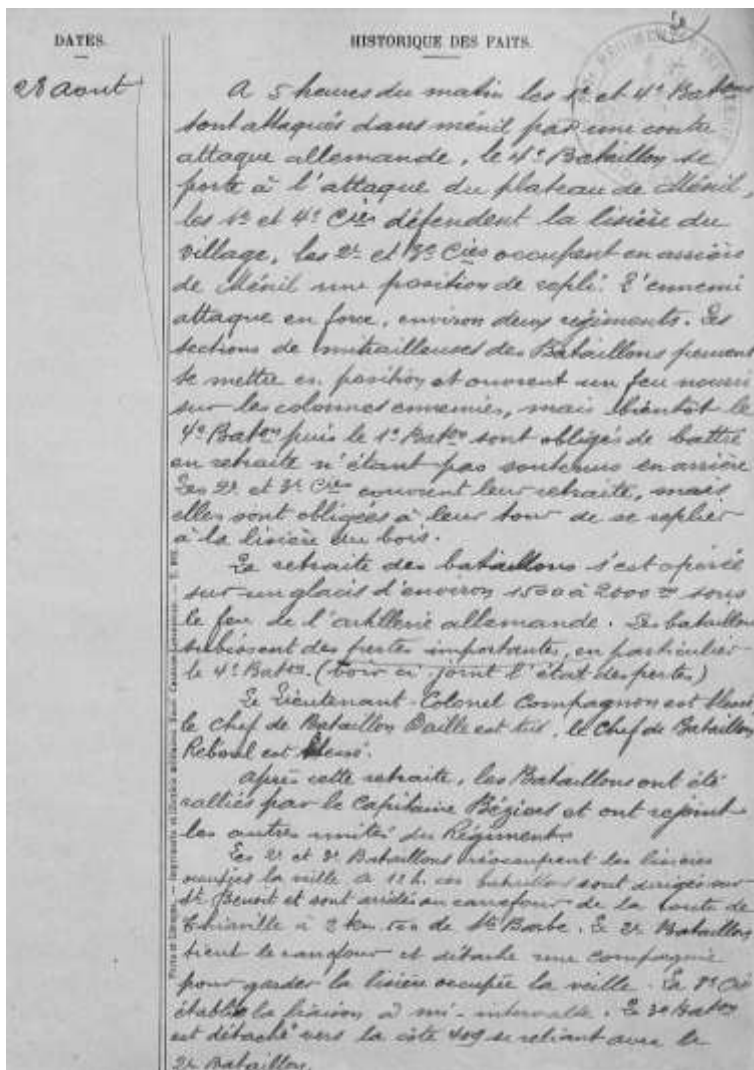 DATES.
HISTORIQUE DES FAITS.
28 Aout
A 5 heures du matin les 1er et 4e Batons
sont attaqués dans ménil par une contre
attaque allemande, le 4e Bataillon se
porte à l'attaque du plateau de Ménil,
les 1re et 4e Cies défendent la lisière du
village, les 2e et 3e Cies occupent en arrière
de Ménil une position de repli. L'ennemi
attaque en force, environ deux régiments. Les
sections de mitrailleuses des Bataillons peuvent
se mettre en position et ouvrent un feu nourri
sur les colonnes ennemies, mais bientôt le
4e Baton puis le 1er Baton sont obligés de battre
en retraite n'étant pas soutenus en arrière
Les 2e et 3e Cies couvrent leur retraite, mais
elles sont obligées à leur tour de se replier
à la lisière du bois.
La retraite des bataillons s'est opérée
sur un glacis d'environ 1500 à 2000 m sous
le feu de l'artillerie allemande. Les bataillons
subissent des pertes importantes, en particulier
le 4e Baton. (voir ci joint l'état des pertes)
Le Lieutenant-Colonel Compagnon est blessé
le chef de Bataillon Daille est tué, le Chef de Bataillon
Reboul est blessé.
Après cette retraite, les Bataillons ont été
ralliés par le Capitaine Béziers et ont rejoint
les autres unités du Régiment.
Les 2e et 3e Bataillons réoccupent les lisières
occupées la veille. A 12 h. ces bataillons sont dirigés sur
St Benoit et sont arrêtés au carrefour de la route de
Thiaville à 2 km. 500 de Ste Barbe. Le 2e Bataillon
tient le carrefour et détache une compagnie
pour garder la lisière occupée la veille. La 8e Cie
établit la liaison à mi-intervalle. Le 3e Baton
est détaché vers la côte 409 se reliant avec le
2e Bataillon.